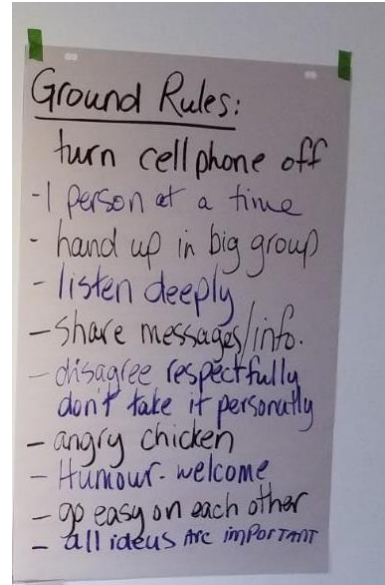 Ground Rules:
turn cellphone off
-1 person at a time
- hand up in big group
- listen deeply
- share messages/info.
- disagree respectfully
don't take it personally
- angry chicken
- Humour - welcome
- go easy on each other
- all ideas Are imPorTAnT